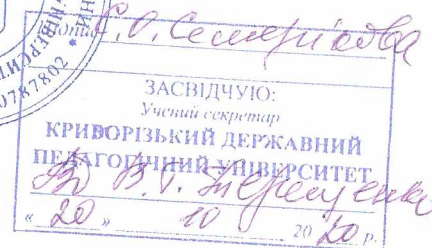 Підпис С.О. Семерікова
ЗАСВІДЧУЮ:
Учений секретар
КРИВОРІЗЬКИЙ ДЕРЖАВНИЙ
ПЕДАГОГІЧНИЙ УНІВЕРСИТЕТ
В.Г. Терещенко
« 20 » 10 2020 р.
0787802 *